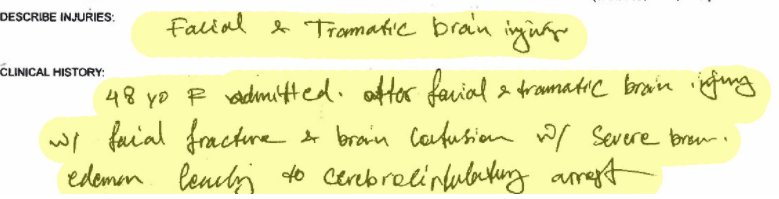 DESCRIBE INJURIES: Facial & Tramatic brain injury
CLINICAL HISTORY:
48 yo F admitted. after facial & tramatic brain injury
w/ facial fracture & brain contusion w/ severe brain
edema leading to arrest